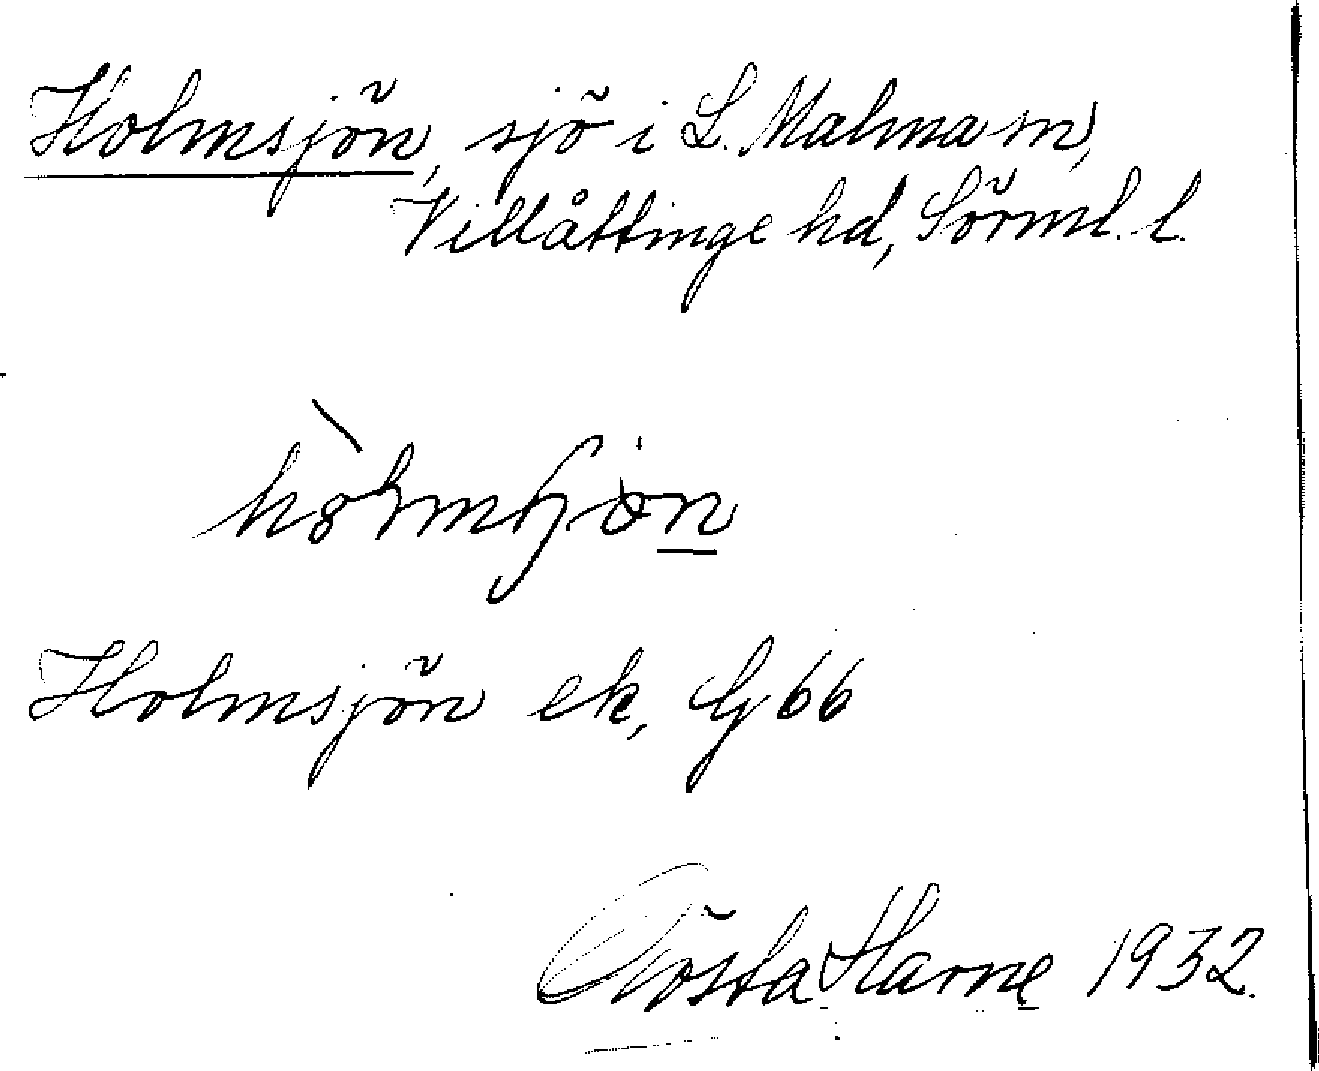 Holmsjön, sjö i L. Malma sn,
Villåttinge hd, Sörml. l.
Holmsjön ek, Gg 66
Gösta Harne 1932.